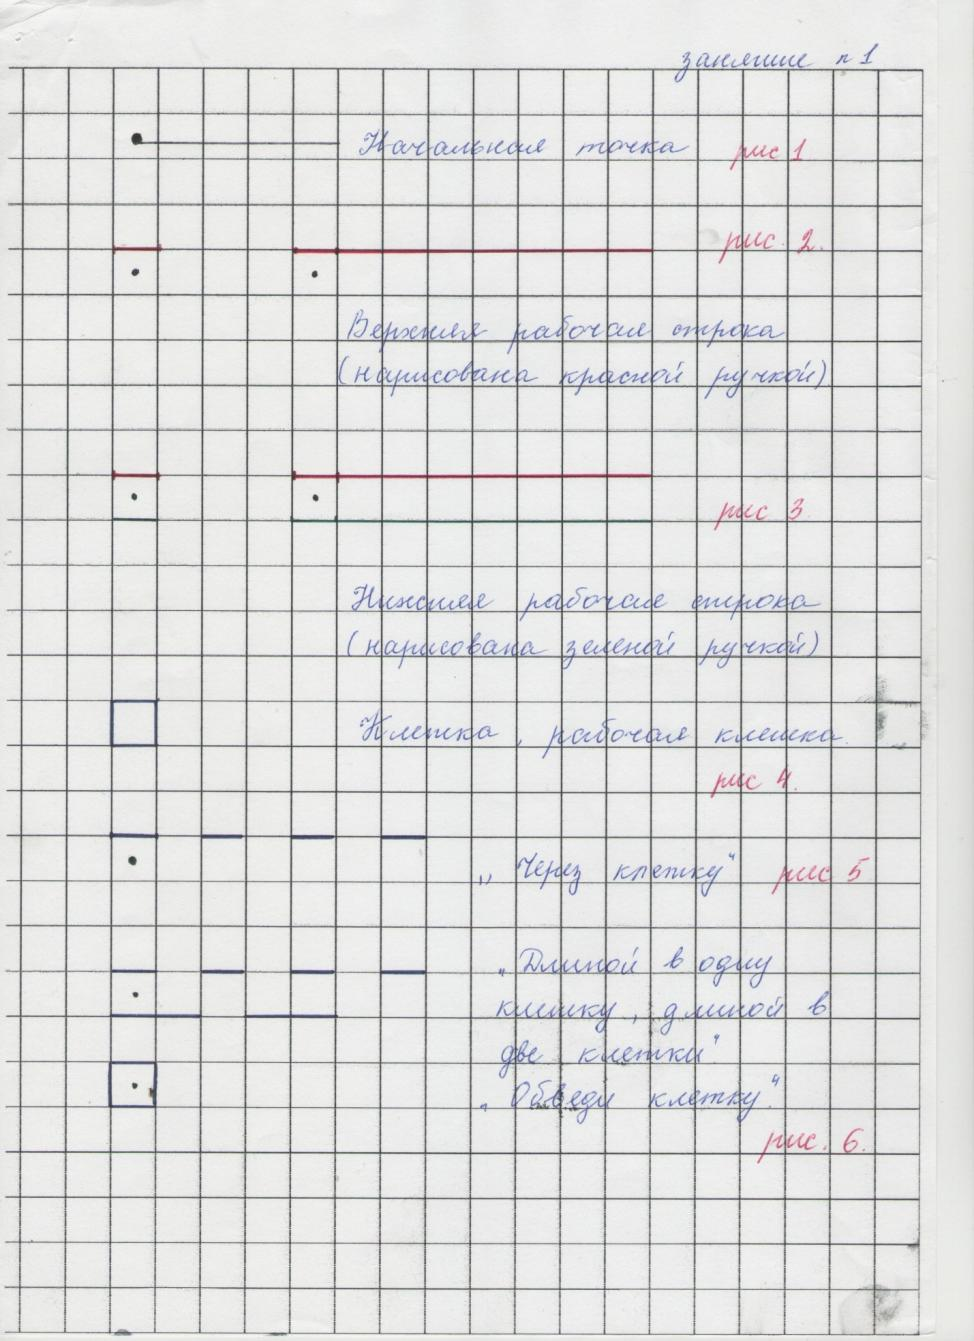 занятие n 1
Начальная точка рис 1
рис. 2.
Верхняя рабочая строка
(нарисована красной ручкой)
рис 3.
Нижняя рабочая строка
(нарисована зеленой ручкой)
Клетка, рабочая клетка.
рис 4.
„Через клетку“ рис 5
„Длиной в одну
клетку, длиной в
две клетки“
„Обведи клетку“.
рис. 6.